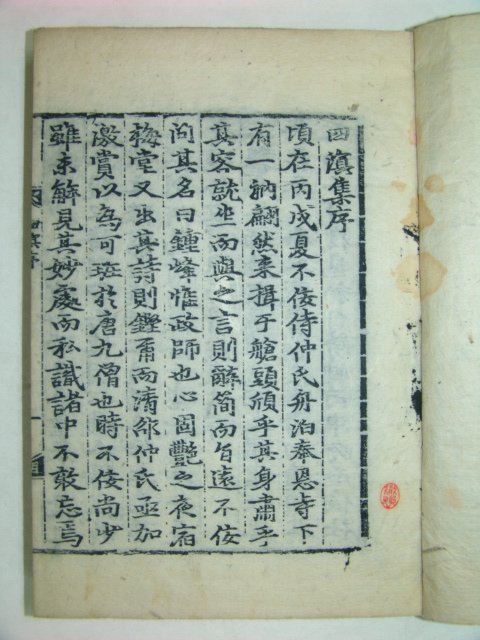 四溟集序
頃在丙戌夏不佞侍仲氏舟泊奉恩寺下
有一衲翩然來揖于艙頭頎乎其身肅乎
其容就坐而與之言則辭簡而旨遠不佞
問其名曰鍾峰惟政師也心固艶之夜宿
梅堂又出其詩則鏗爾而淸邵仲氏亟加
激賞以爲可班於唐九僧也時不佞尙少
雖未解見其妙處而私識諸中不敢忘焉